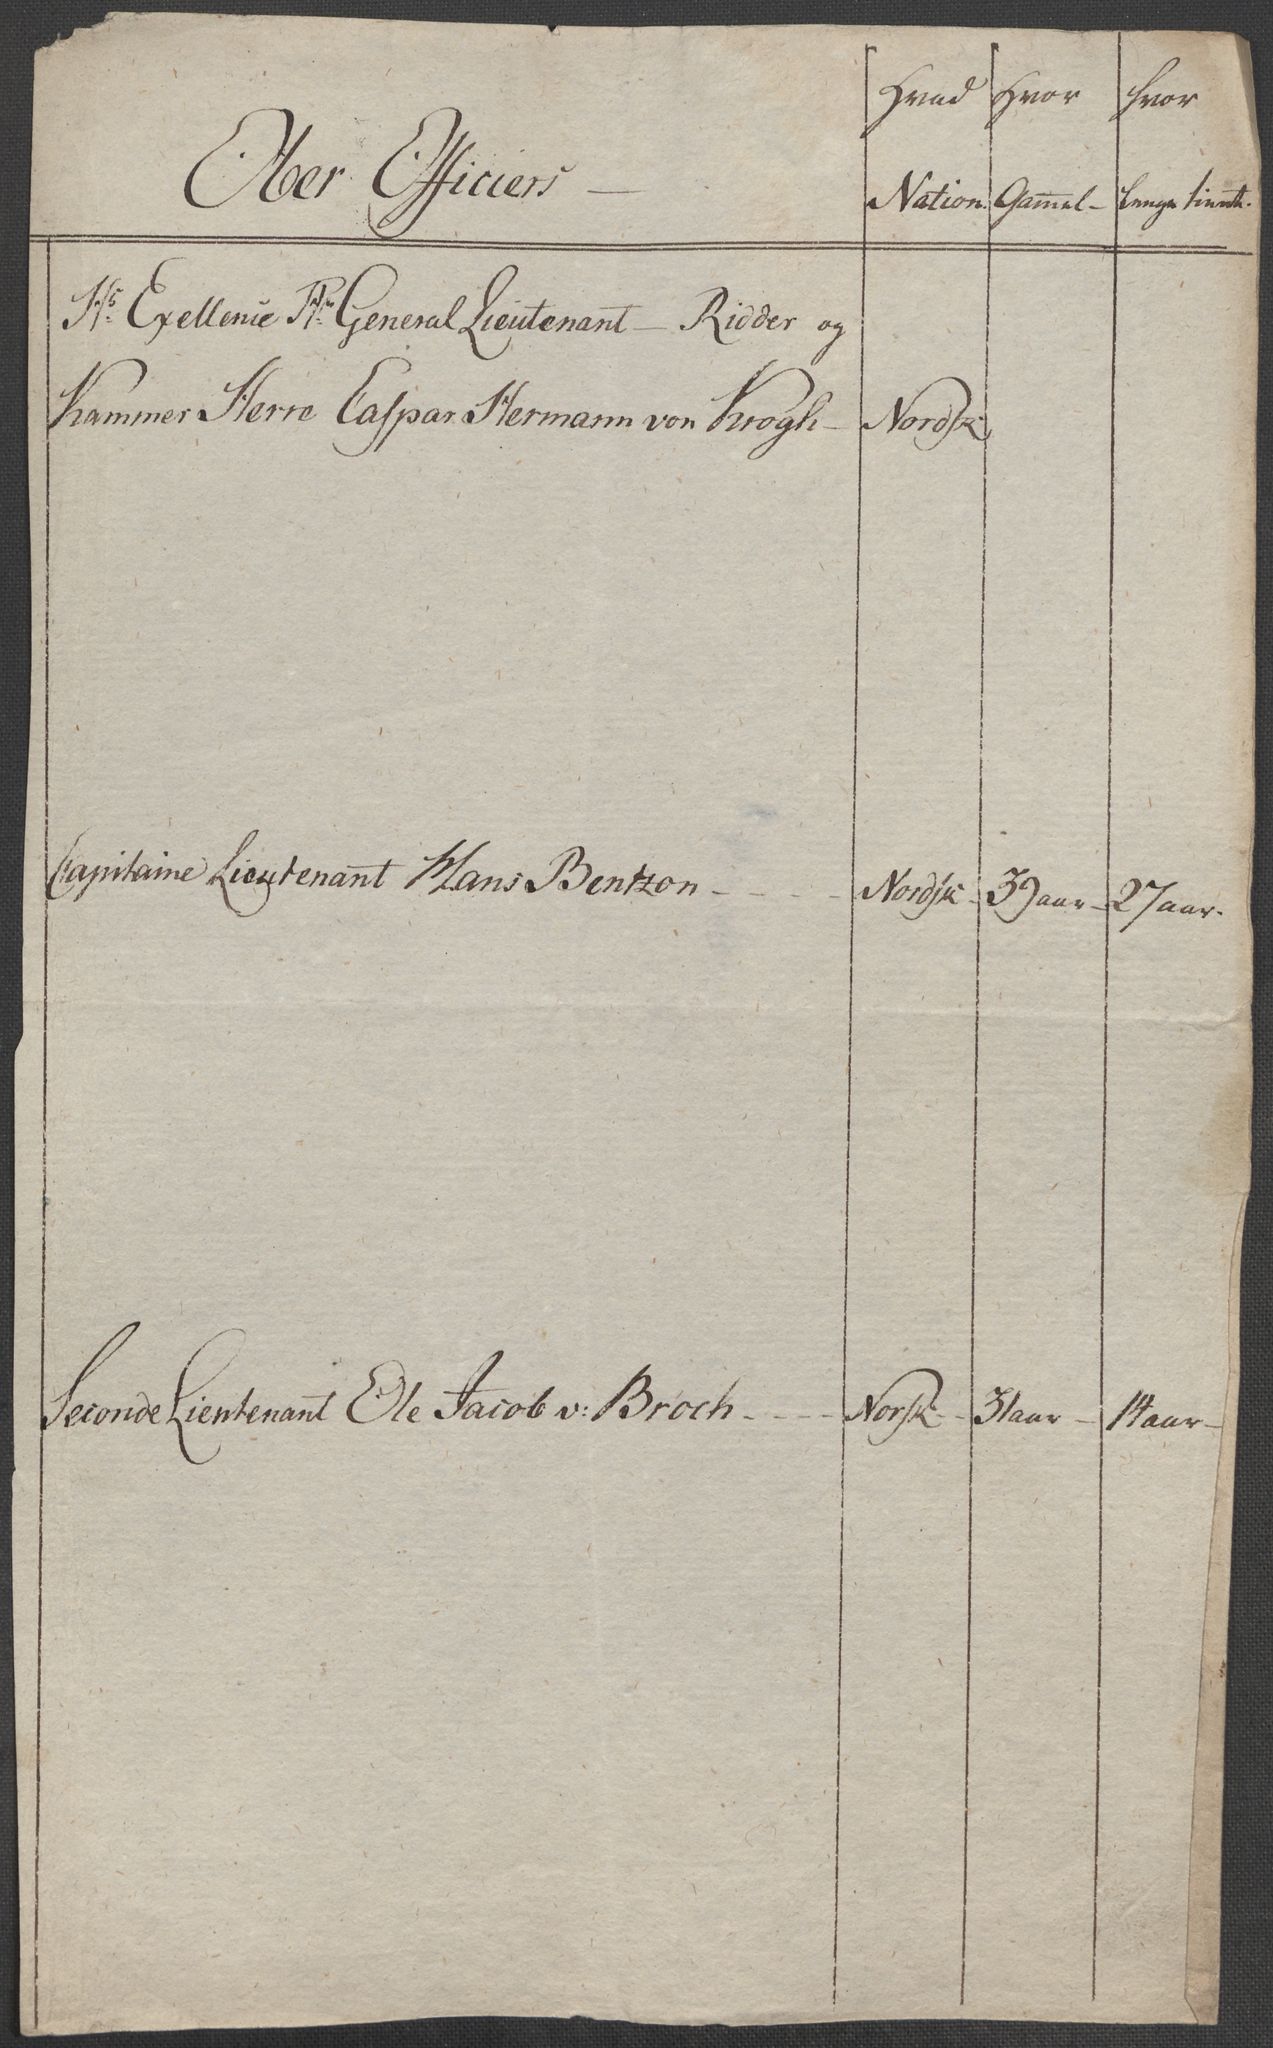 Hvad Hvor hvor
Ober Officiers —
Nation. Gam̄el - lenge tient.
Hs. Exellence Hr. General Lieutenant — Ridder og
Kammer Herre Caspar Hermann von Krogh — Nordsk
Capitaine Lieutenant Hans Bentzon - - - - Nordsk - 39 aar - 27 aar.
Seconde Lieutenant Ole Jacob v: Broch - - - - Norsk - 31 aar - 14 aar -